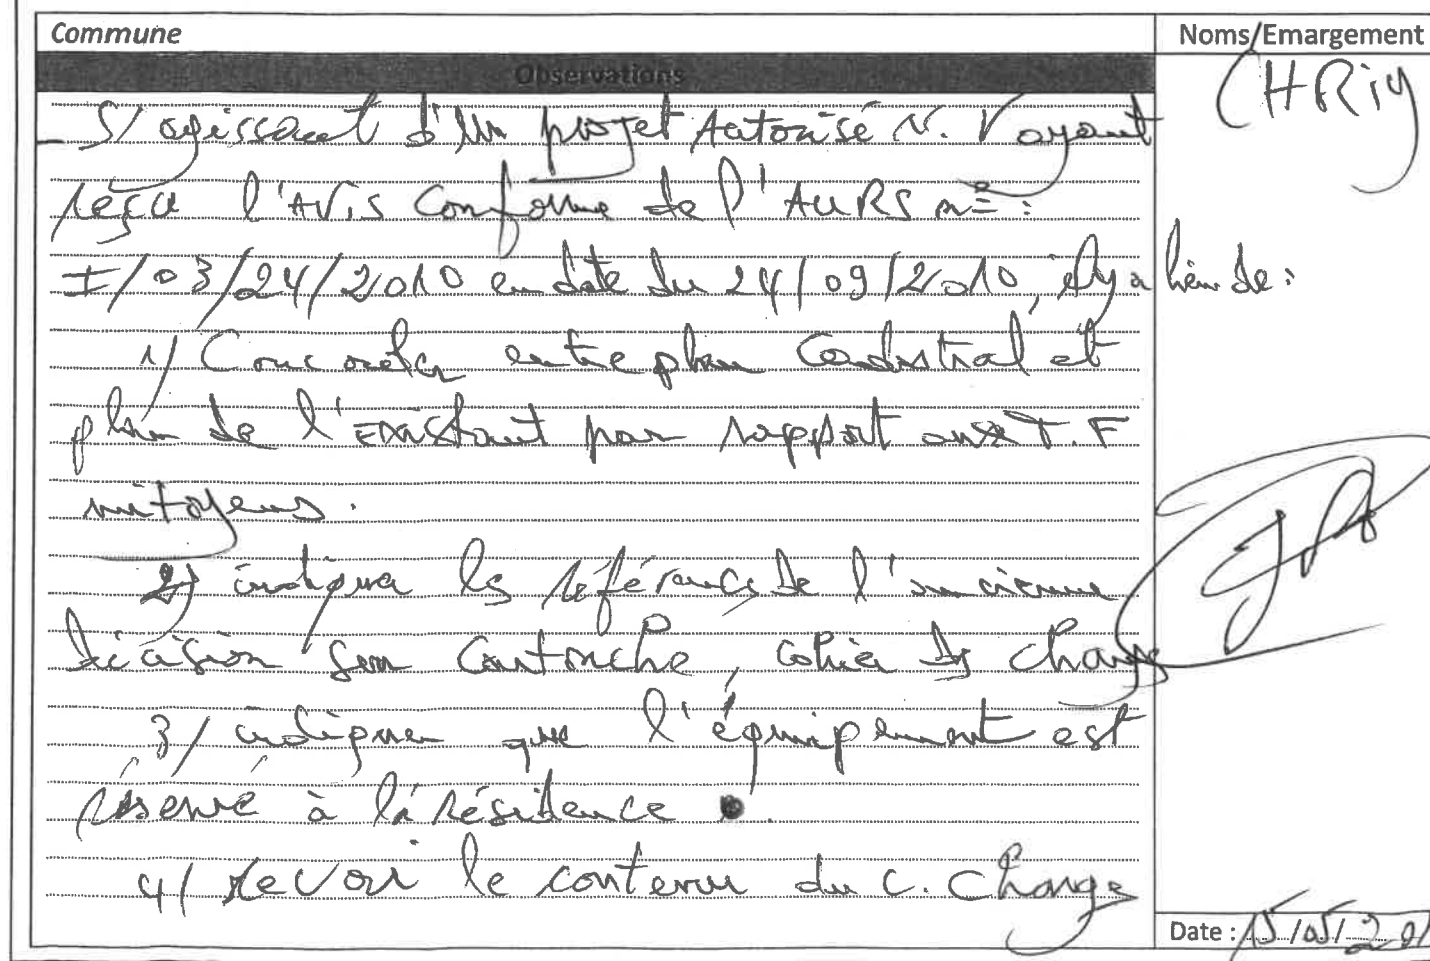 Commune
Noms/Emargement
Observations
CHRiY
S'agissant d'un projet Autorisé N. V ayant
réçu l'Avis Conforme de l'AURS n°:
I/03/24/2010 en date du 24/09/2010, il y a lieu de :
1/ Concorder entre plan Cadastral et
plan de l'EXistant par rapport aux T.F
mitoyens.
2/ indiquer les références de l'ancienne
décision sur Cartouche, cahier des charges
3/ indiquer que l'équipement est
réservé à la résidence.
4/ revoir le contenu du C. Charge
Date : 15/05/201